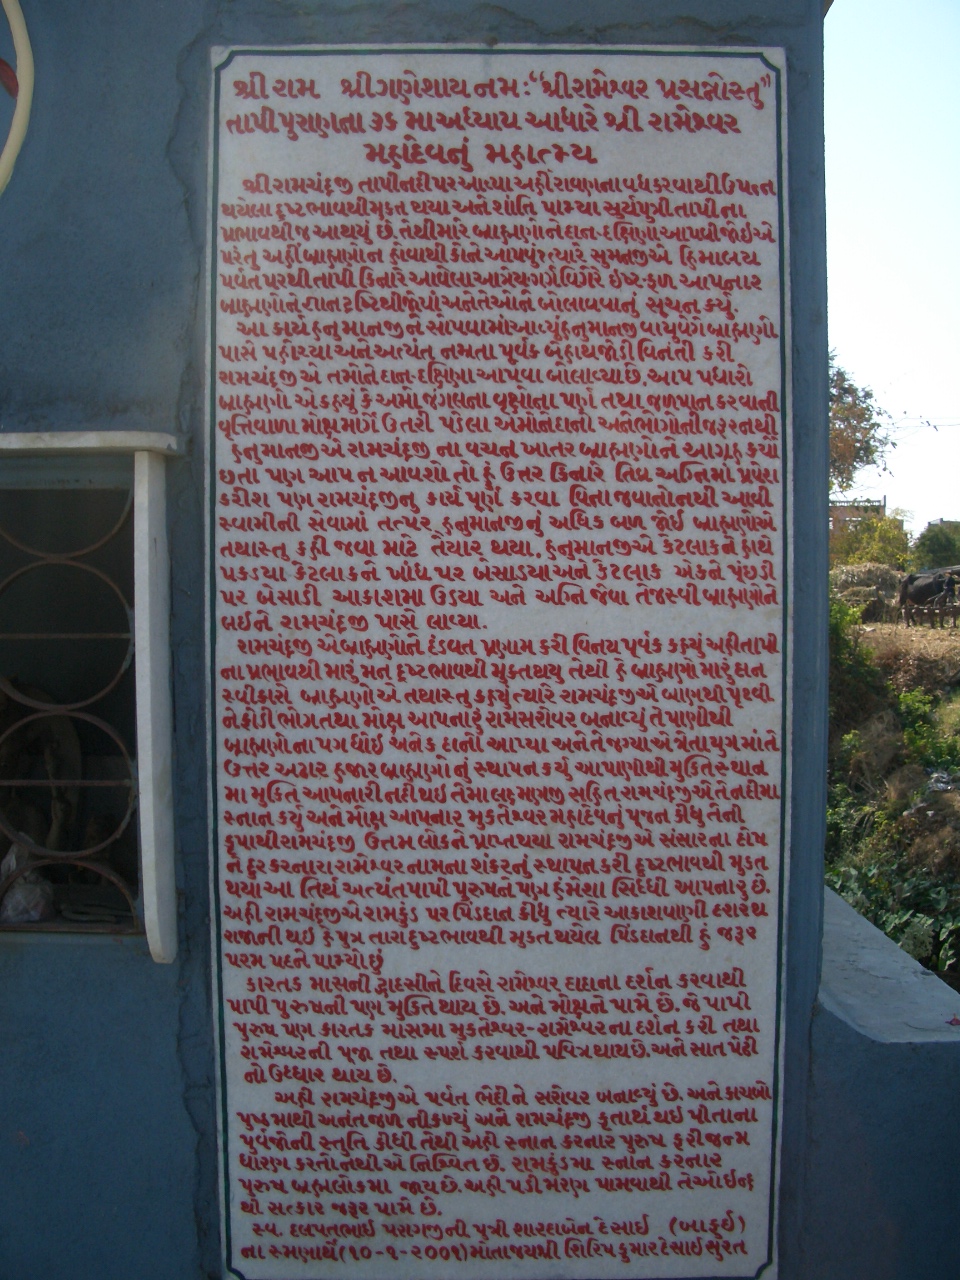 શ્રી રામ શ્રી ગણેશાય નમઃ "શ્રી રામેશ્વર પ્રસન્નોસ્તુ"
તાપી પુરાણના ૩૬ મા અધ્યાય આધારે શ્રી રામેશ્વર
મહાદેવનું મહાત્મ્ય
શ્રી રામચંદ્રજી તાપી નદી પર આવ્યા અહીં રાવણના વધ કરવાથી ઉપન્ન
થયેલા દુષ્ટ ભાવથી મુક્ત થયા અને શાંતિ પામ્યા સુર્યપુત્રી તાપી ના
પ્રભાવથી જ આ થયું છે. તેથી મારે બ્રાહ્મણોને દાન-દક્ષિણા આપવી જોઇએ
પરંતુ અહીં બ્રાહ્મણો ન હોવાથી કોને આપવું? ત્યારે સુમન્તજીએ હિમાલય
પર્વત પરથી તાપી કિનારે આવેલા આત્રેય ગર્ગ વિગેરે ઇષ્ટ ફળ આપનાર
બ્રાહ્મણોને જ્ઞાનદ્રષ્ટિથી જોયાં અને તેઓને બોલાવવાનું સૂચન કર્યું.
આ કાર્ય હનુમાનજીને સોંપવામાં આવ્યું હનુમાનજી વાયુવેગે બ્રાહ્મણો
પાસે પહોંચ્યા અને અત્યંત નમ્રતા પૂર્વક બે હાથ જોડી વિનંતી કરી
રામચંદ્રજી એ તમોને દાન-દક્ષિણા આપવા બોલાવ્યા છે. આપ પધારો
બ્રાહ્મણો એ કહ્યું કે અમો જંગલના વૃક્ષોના પર્ણ તથા જળપાન કરવાની
વૃત્તિવાળા મોક્ષ માર્ગે ઉતરી પડેલા અમોને દાનો અને ભોગોની જરૂર નથી
હનુમાનજીએ રામચંદ્રજી ના વચન ખાતર બ્રાહ્મણોને આગ્રહ કર્યો
છતા પણ આપ ન આવશો તો હું ઉત્તર કિનારે તિવ્ર અગ્નિમાં પ્રવેશ
કરીશ પણ રામચંદ્રજીનુ કાર્ય પૂર્ણ કરવા વિના જવાનો નથી આવી
સ્વામીની સેવામાં તત્પર હનુમાનજીનું અધિક બળ જોઈ બ્રાહ્મણોએ
તથાસ્તુ કહી જવા માટે તૈયાર થયા. હનુમાનજીએ કેટલાકને હાથે
પકડ્યા કેટલાકને ખાંધ પર બેસાડ્યા અને કેટલાક એકને પૂંછડી
પર બેસાડી આકાશમા ઉડયા અને અગ્નિ જેવા તેજસ્વી બ્રાહ્મણોને
લઈને રામચંદ્રજી પાસે લાવ્યા.
રામચંદ્રજી એ બ્રાહ્મણોને દંડવત પ્રણામ કરી વિનય પૂર્વક કહ્યું અહી તાપી
ના પ્રભાવથી મારું મન દુષ્ટ ભાવથી મુક્ત થયુ તેથી હે બ્રાહ્મણો મારું દાન
સ્વીકારો. બ્રાહ્મણોએ તથાસ્તુ કહ્યું ત્યારે રામચંદ્રજીએ બાણથી પૃથ્વી
ને ફોડી ભોગ તથા મોક્ષ આપનારું રામસરોવર બનાવ્યું તે પાણીથી
બ્રાહ્મણોના પગ ધોઈ અનેક દાનો આપ્યા અને તે જગ્યાએ ત્રેતાયુગ માં તે
ઉત્તર અઢાર હજાર બ્રાહ્મણોનું સ્થાપન કર્યું આ પાણીથી મુક્તિ સ્થાન
મા મુક્તિ આપનારી નદી થઇ તેમા લક્ષ્મણજી સહિત રામચંદ્રજીએ તે નદીમા
સ્નાન કર્યું અને મોક્ષ આપનાર મુક્તેશ્વર મહાદેવનું પૂજન કીધુ તેની
કૃપાથી રામચંદ્રજી ઉત્તમ લોકને પ્રાપ્ત થયા રામચંદ્રજી એ સંસારના દોષ
ને દુર કરનારા રામેશ્વર નામના શંકરનું સ્થાપન કરી દુષ્ટ ભાવથી મુક્ત
થયા આ તિર્થ અત્યંત પાપી પુરુષને પણ હંમેશા સિદ્ધી આપનારું છે.
અહી રામચંદ્રજીએ રામકુંડ પર પિંડદાન કીધુ ત્યારે આકાશવાણી દશરથ
રાજાની થઈ કે પુત્ર તારા દુષ્ટ ભાવથી મુક્ત થયેલ પિંડદાનથી હું જરૂર
પરમ પદને પામ્યો છું
કારતક માસની દ્વાદસીને દિવસે રામેશ્વર દાદાના દર્શન કરવાથી
પાપી પુરુષની પણ મુક્તિ થાય છે. અને મોક્ષને પામે છે. જે પાપી
પુરુષ પણ કારતક માસમા મુક્તેશ્વર-રામેશ્વરના દર્શન કરી તથા
રામેશ્વરની પૂજા તથા સ્પર્શ કરવાથી પવિત્ર થાય છે. અને સાત પેઢી
નો ઉદ્ધાર થાય છે.
અહી રામચંદ્રજીએ પર્વત ભેદીને સરોવર બનાવ્યું છે. અને કાચબો
પુષ્ઠમાથી અનંત જળ નીકળ્યું અને રામચંદ્રજી કૃતાર્થ થઇ પોતાના
પુર્વજોની સ્તુતિ કીધી તેથી અહી સ્નાન કરનાર પુરુષ ફરી જન્મ
ધારણ કરતો નથી એ નિશ્ચિત છે. રામકુંડમા સ્નાન કરનાર
પુરુષ બ્રહ્મલોકમા જાય છે. અહી પડી મરણ પામવાથી તેઓ ઇન્દ્ર
થી સત્કાર જરૂર પામે છે.
સ્વ. દલપતભાઈ પરાગજીની પુત્રી શારદાબેન દેસાઈ (બાફુઈ)
ના સ્મણાર્થે (૧૦-૧-૨૦૦૧) મોતાજયશ્રી શિરિષ કુમાર દેસાઈ સુરત